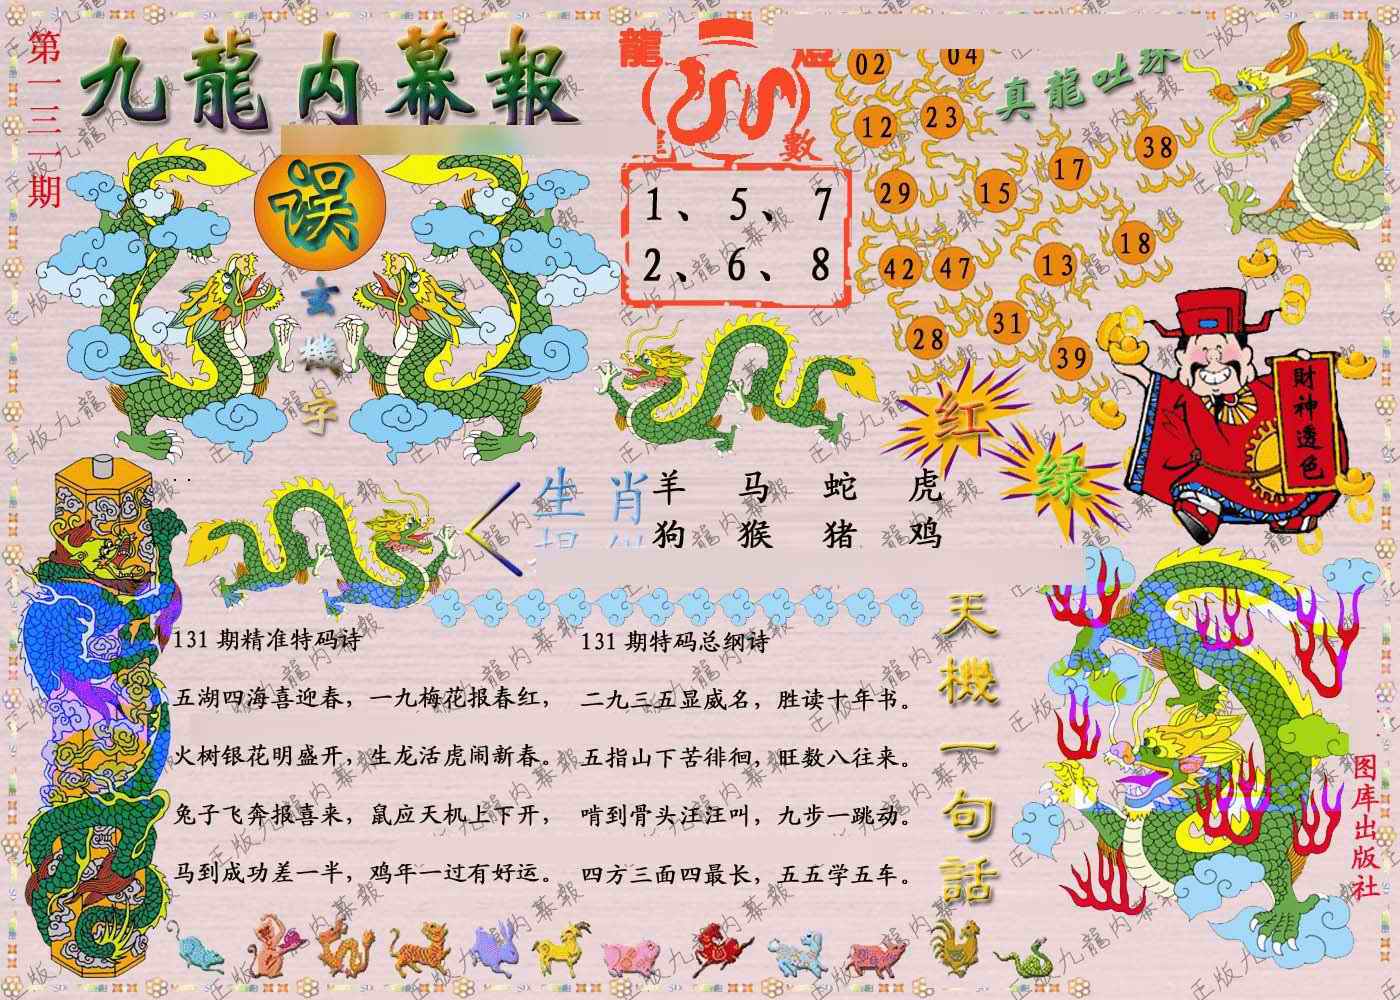 第一三一期
九龍内幕報
誤
玄機字
龍
數
1、5、7
2、6、8
02
04
12
23
29
15
17
38
42
47
13
18
28
31
39
真龍吐珠
红
绿
財神透色
生肖
羊 马 蛇 虎
狗 猴 猪 鸡
131 期精准特码诗
五湖四海喜迎春，一九梅花报春红，
火树银花明盛开，生龙活虎闹新春。
兔子飞奔报喜来，鼠应天机上下开，
马到成功差一半，鸡年一过有好运。
131 期特码总纲诗
二九三五显威名，胜读十年书。
五指山下苦徘徊，旺数八往来。
啃到骨头汪汪叫，九步一跳动。
四方三面四最长，五五学五车。
天機一句話
图库出版社
正版九龍内幕報